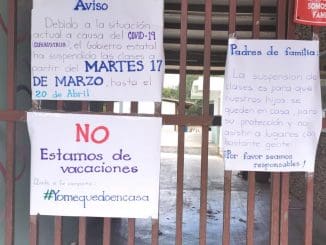 Aviso
Debido a la situación
actual a causa del COVID-19
(coronavirus), el Gobierno estatal
ha suspendido las clases a
partir del MARTES 17
DE MARZO, hasta el
20 de Abril
NO
Estamos de
vacaciones
#Yomequedoencasa
Padres de familia:
La suspensión de
clases es para que
nuestros hijos se
queden en casa, para
su protección y no
asistir a lugares con
bastante gente.
¡Por favor seamos
responsables!
SOMOS